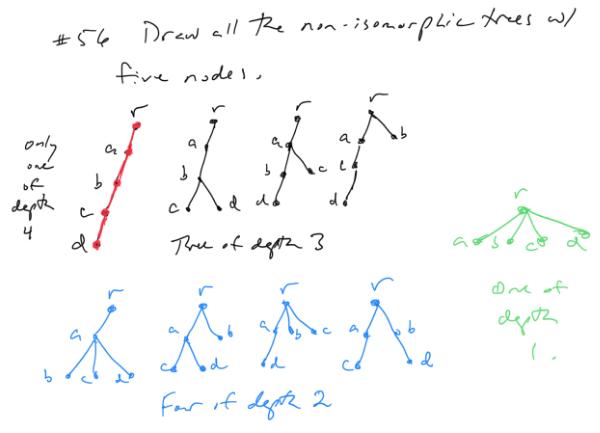 #56 Draw all the non-isomorphic trees w/
five nodes.
only
one
of
depth
4
r
a
b
c
d
r
a
b
c d
r
a
b c
d
r
a b
c
d
Three of depth 3
r
a b c d
One of
depth
1.
r
a
b c d
r
a b
c d
r
a b c
d
r
a b
c d
Four of depth 2